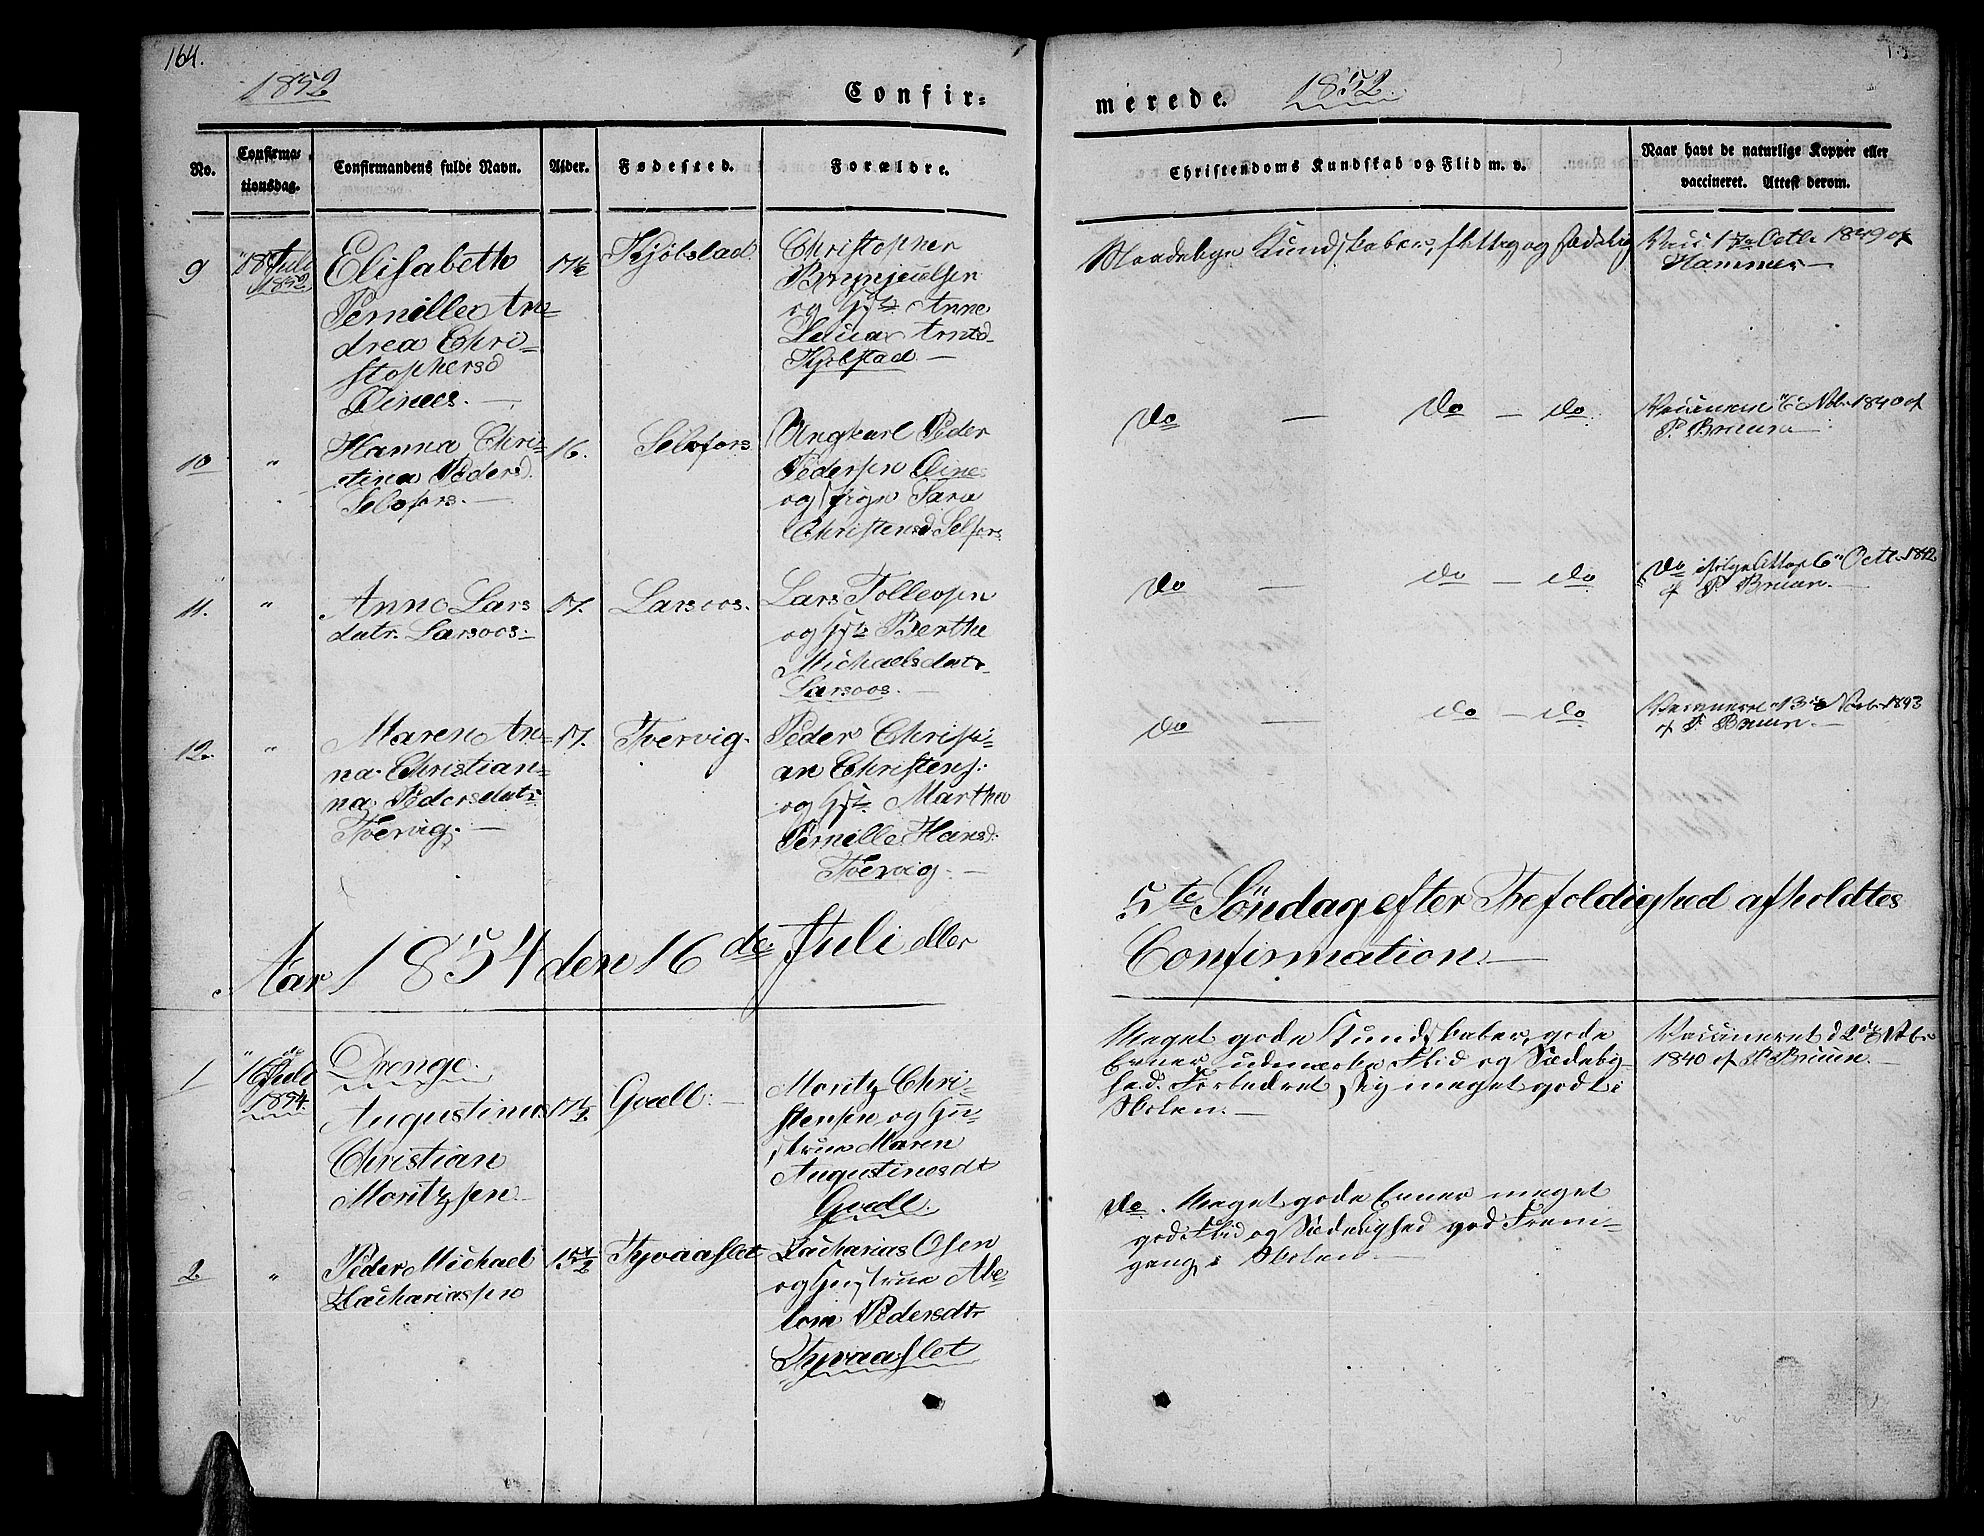 164.
1852
Confir-
merede.
1852.
No.
Confirma-
tionsdag.
Confirmandens fulde Navn.
Alder.
Fødested.
Forældre.
Christendoms Kundskab og Flid m. v.
Naar havt de naturlige Kopper eller
vaccineret. Attest derom.
9
18 Juli
1852
Elisabeth
Pernille An-
drea Chri-
stophersd
17½
Kjølstad
Christopher
Brynjulfsen
og Gst. Anne
Arntsd
Kjølstad. —
Maadelige Kundskaber, flittig og sædelig
Vacc. 17de Octb. 1849 af
Hammer —
10
"
Hanna Chri-
stina Pedersd
Selsfors. —
16.
Selsfors
Ungkarl Peder
Pedersen
og Pige Sara
Christensd Selfors
do — do — do
6 Nob. 1840 af
P. Bruun —
11.
"
Anne Lars
datr. Larsoos.
17.
Larsoos.
Lars Tollevsen
og Gst. Berthe
Michaelsdatr
Larsoos. —
do — do — do
do ifølge Att. af 6 Octb. 1842
af P. Bruun. —
12.
"
Maren An-
na Christian-
na Pedersdatr
Tvervig. —
17.
Tvervig.
Peder Christi-
an Christens:
og Gst. Marthe
Pernille Hansd:
Tvervig. —
do — do — do
13de Novb. 1843
af P. Bruun. —
Aar 1854 den 16de Juli eller
5te Søndag efter Trefoldighed afholdtes
Confirmation. —
1
16de Juli
1854.
Drenge.
Augustinus
Christian
Moritzsen
17½
Qvall. —
Moritz Chri-
stensen og Hu-
strue Maren
Augustinusdt
Qvall.
Meget gode Kundskaber, gode
Evner, udmærket Flid og Sædelig-
hed. Forbedret sig meget godt i
Skolen. —
Vaccineret d
1840 af P. Bruun. —
2
"
Peder Michael
Zachariassen
15½
Tyvaaslet
Zacharias Olsen
og Hustrue Abe-
lone Pedersdtr
Tyvaaslet
do. Meget gode Evner meget
god Flid og Sædelighed god Frem-
gang i Skolen. —